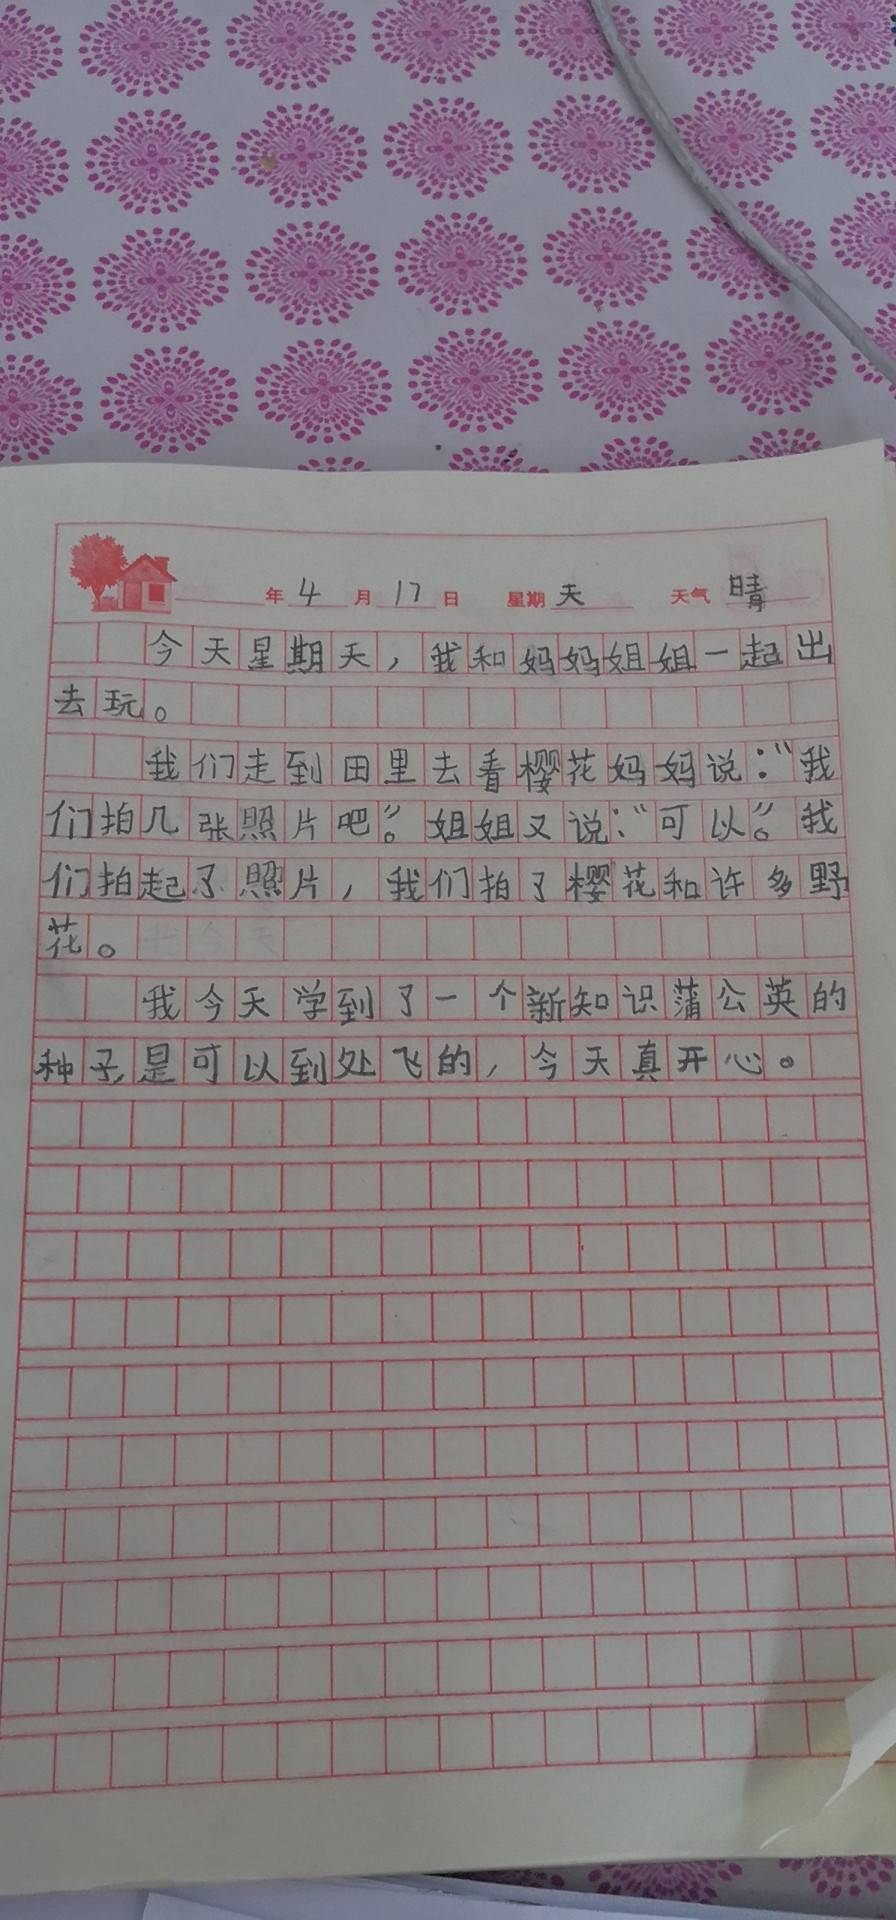 年 4 月 17 日 星期 天 天气 晴
今天星期天，我和妈妈姐姐一起出
去玩。
我们走到田里去看樱花妈妈说：“我
们拍几张照片吧”。姐姐又说：“可以”。我
们拍起了照片，我们拍了樱花和许多野
花。
我今天学到了一个新知识蒲公英的
种子,是可以到处飞的，今天真开心。